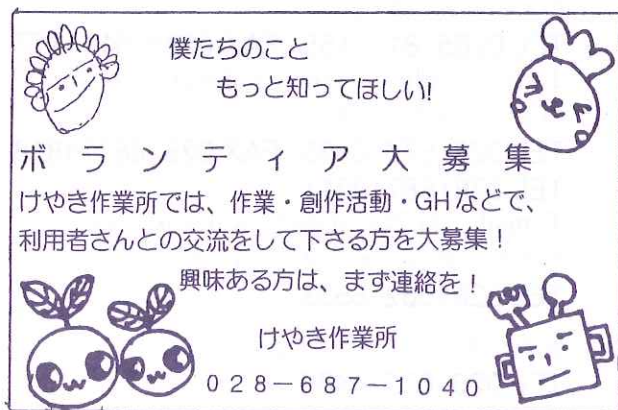 僕たちのこと
もっと知ってほしい!
ボランティア大募集
けやき作業所では、作業・創作活動・GHなどで、
利用者さんとの交流をして下さる方を大募集！
興味ある方は、まず連絡を！
けやき作業所
０２８－６８７－１０４０